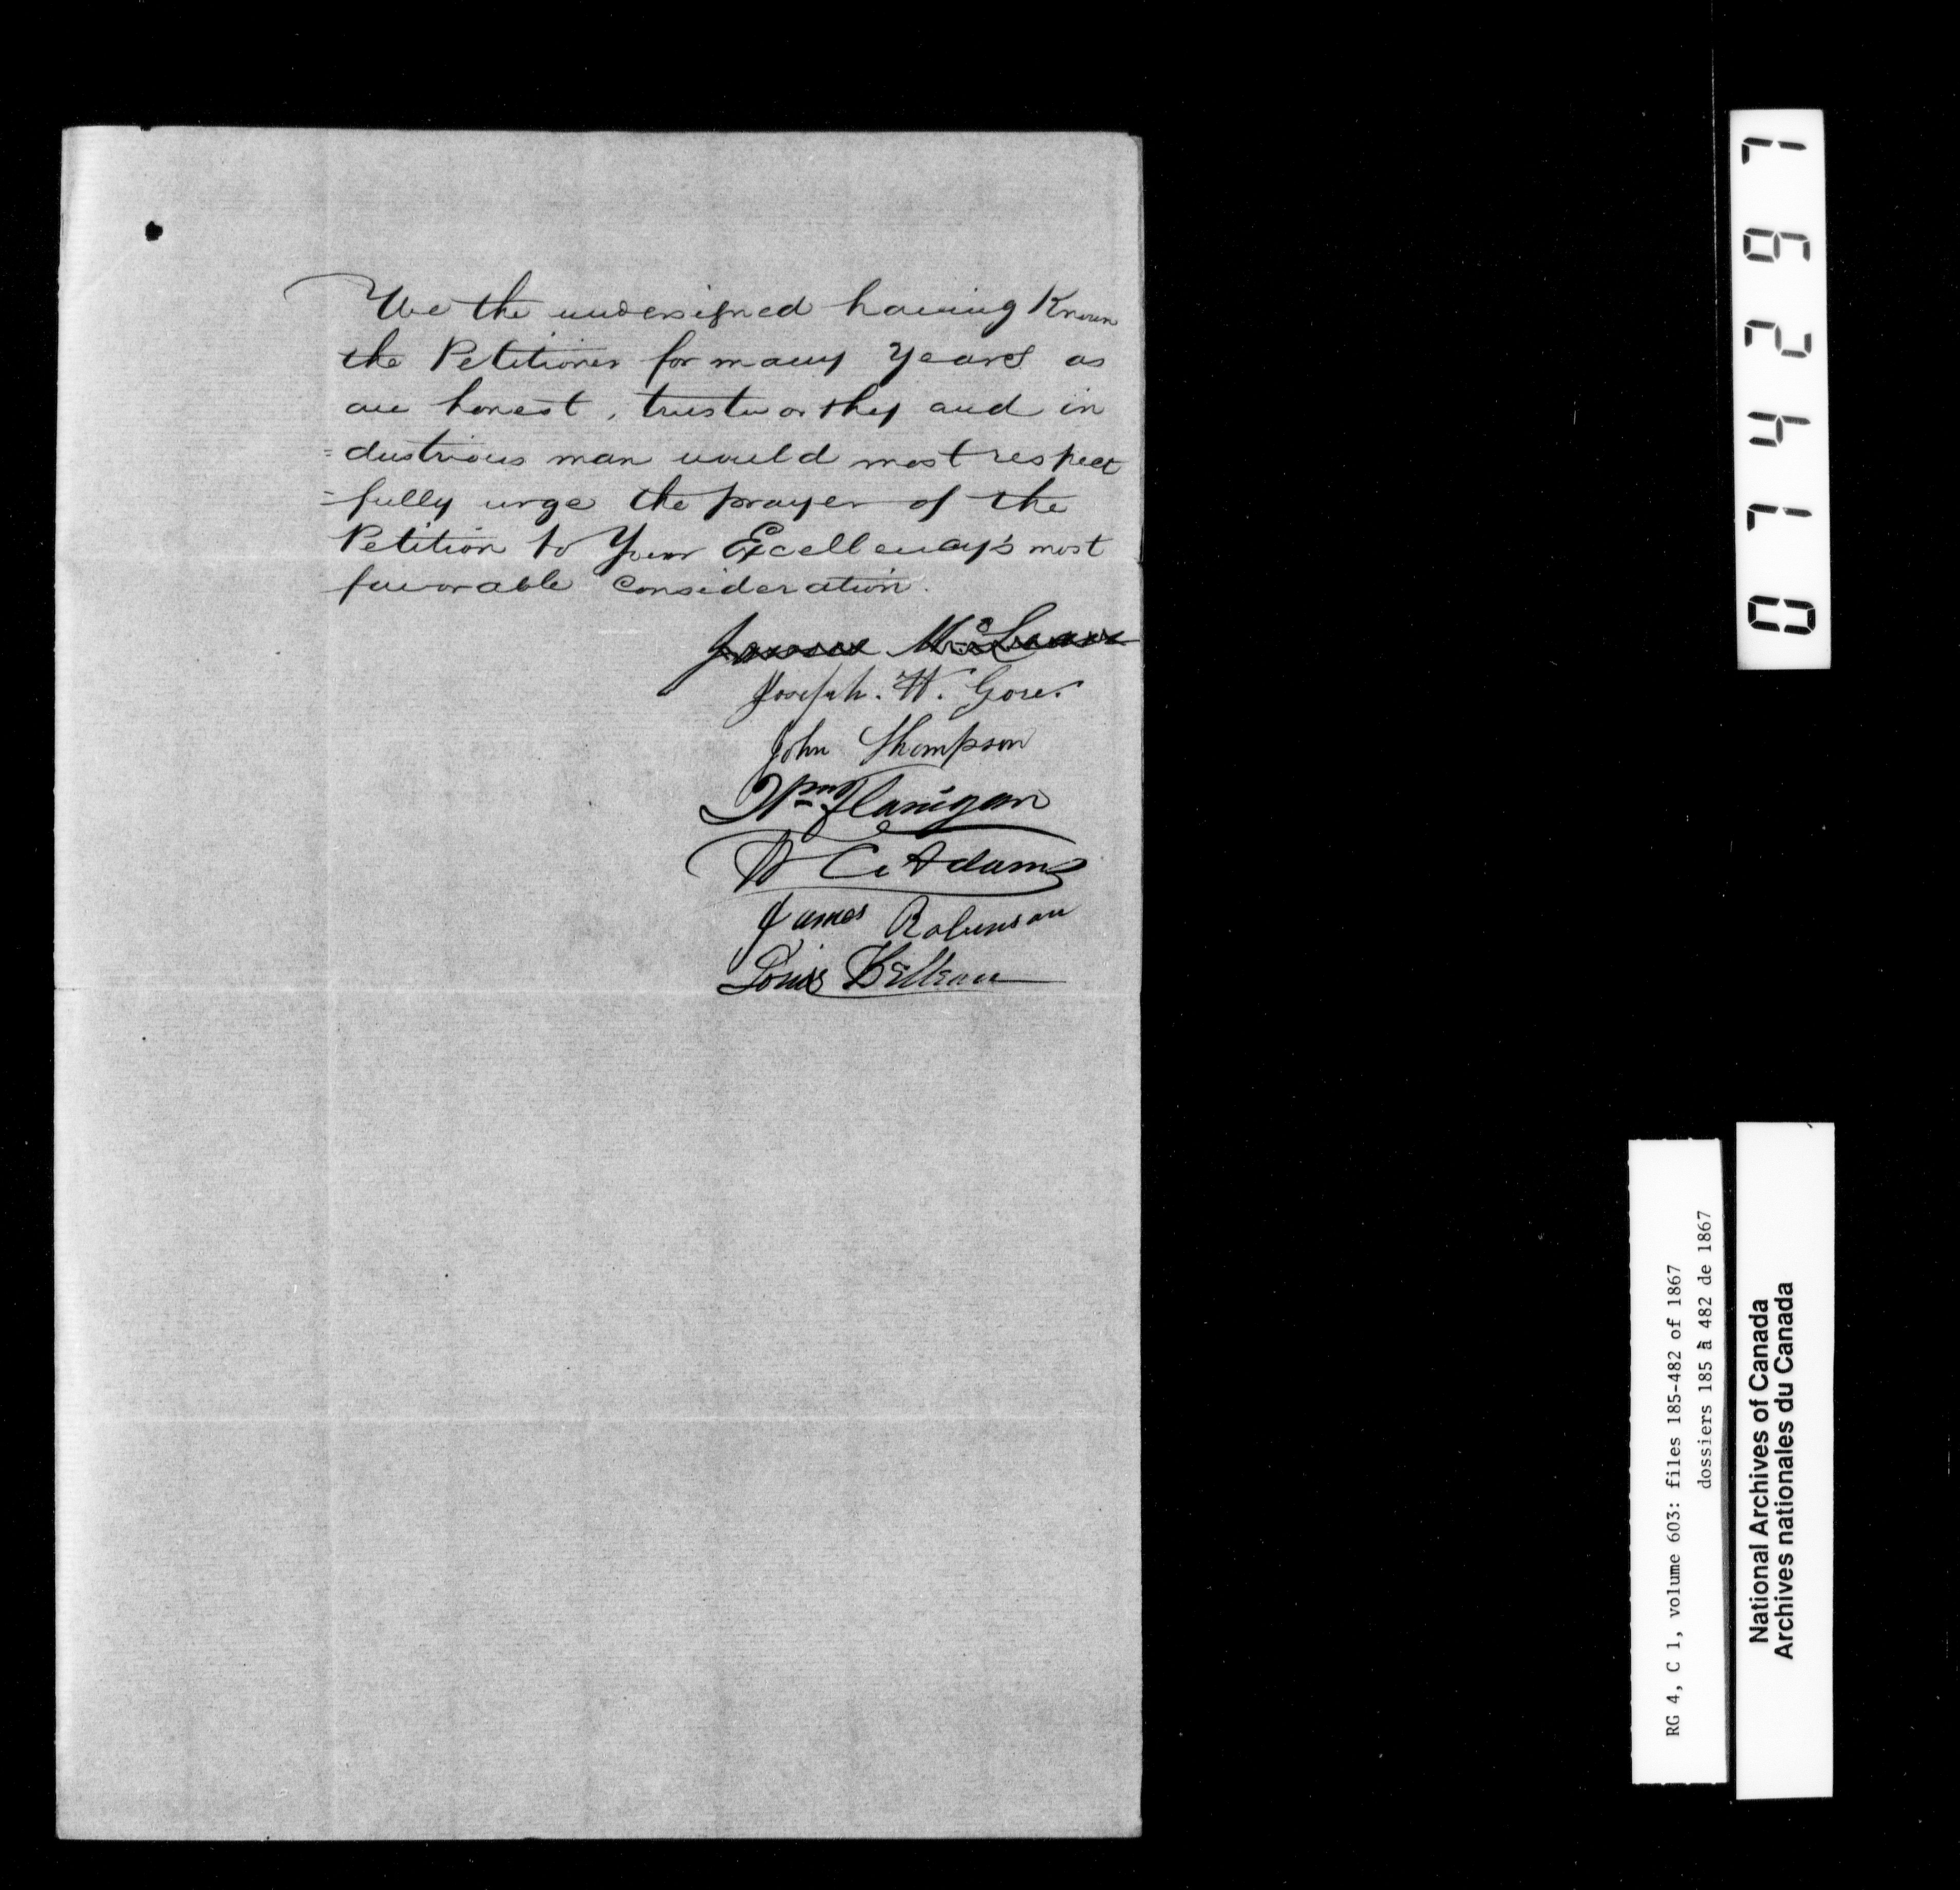 We the undersigned having Known
the Petitioner for many Years as
an honest, trustworthy and in
=dustrious man would most respect
=fully urge the prayer of the
Petition to Your Excellency's most
favorable consideration.
James McLean
Joseph. W. Gore.
John Thompson
Wm Flanigan
W C Adams
James Robinson
Louis
074297
RG 4, C 1, volume 603: files 185-482 of 1867
dossiers 185 à 482 de 1867
National Archives of Canada
Archives nationales du Canada